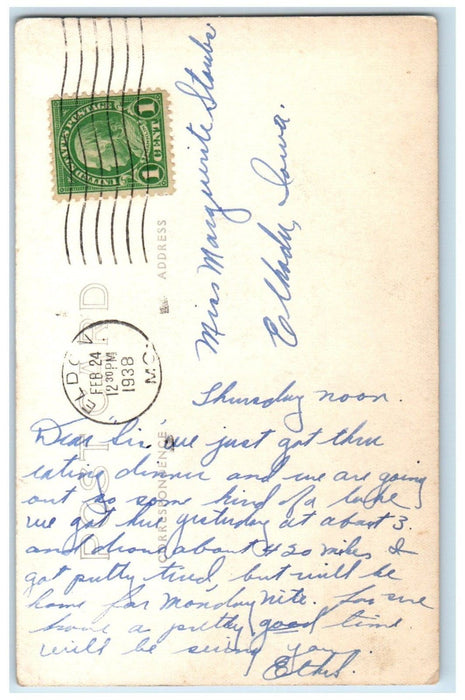 UNITED STATES POSTAGE
1 CENT 1
FEB 24
12 30 PM
1938
MO.
POST CARD
ADDRESS
CORRESPONDENCE
Miss Marguerite Staube
Elkader, Iowa.
Thursday noon.
Dear Sis we just got thru
eating dinner and we are going
out to some kind of a
we got here yesterday at about 3.
and drove about 420 miles I
got putty tired, but will be
home for Monday nite.
have a pretty good time
will be seeing you.
Ethel.